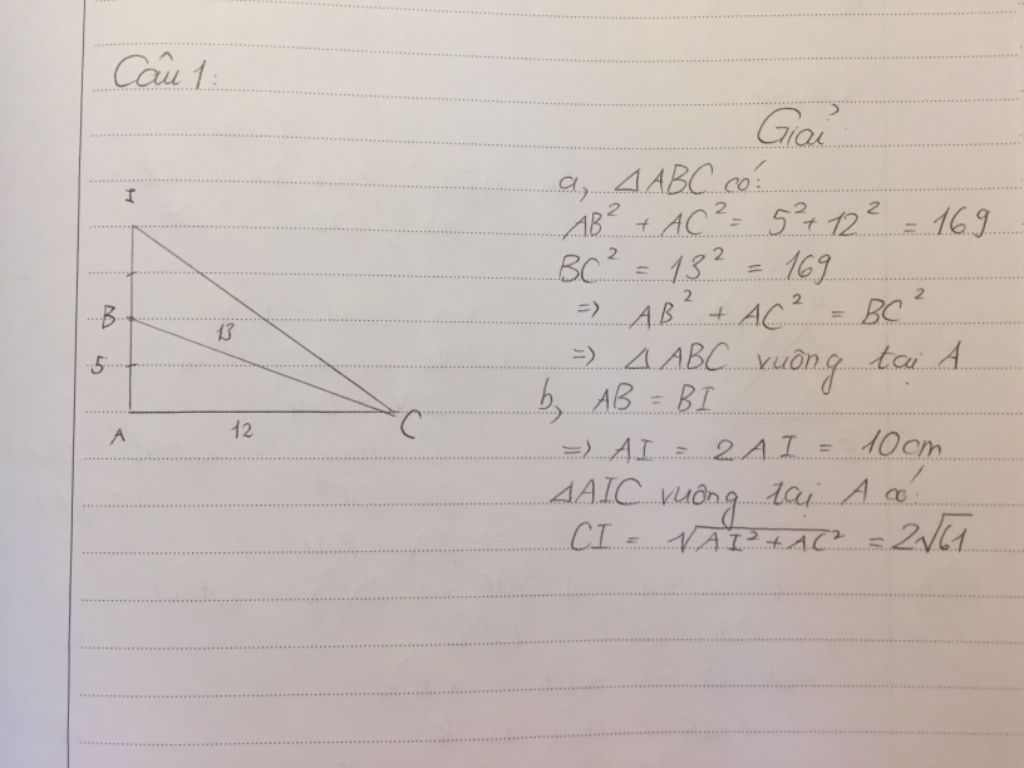 Câu 1:
Giải
I
B
13
5
A
12
C
a, ΔABC có:
AB² + AC² = 5² + 12² = 169
BC² = 13² = 169
=> AB² + AC² = BC²
=> ΔABC vuông tại A
b, AB = BI
=> AI = 2AI = 10cm
ΔAIC vuông tại A có:
CI = √AI² + AC² = 2√61